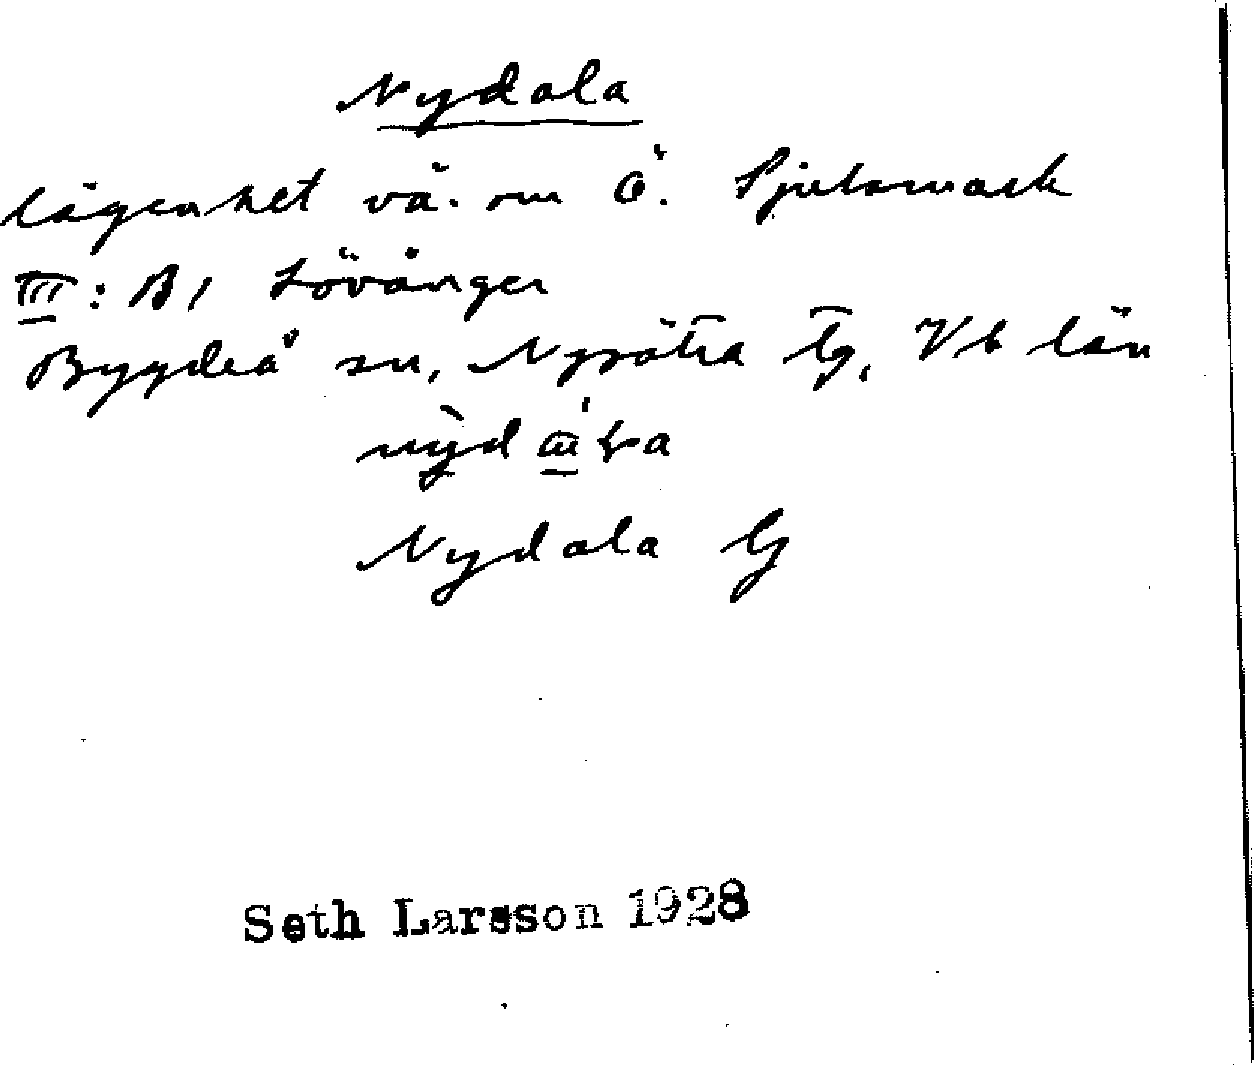 Nydala
lägenhet vä. om Ö. Sjulsmark
III: B1 Lövånger
Bygdeå sn, Nysätra tg, Vb län
Nydala G
Seth Larsson 1928